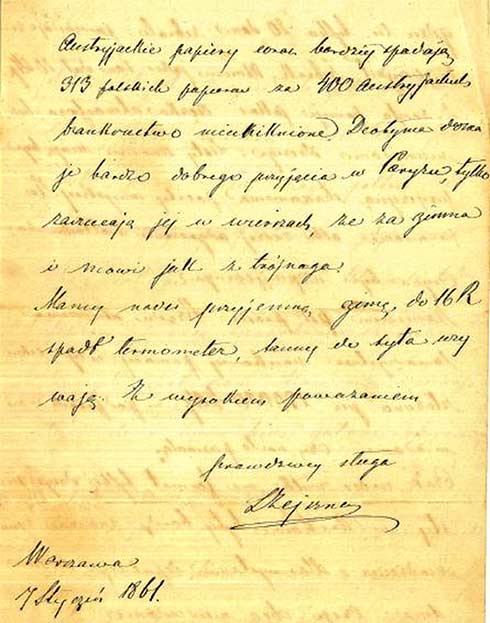 Austryjackie papiery coraz bardziej spadają,
313 polskich papieram za 400 Austryjackich
bankructwo nieuniknione. Deotyma dozna
je bardzo dobrego przyjęcia w Paryżu, tylko
zarzucają jej w wierszach, że za zimna
i mówi jak z trójnoga.
Mamy nader przyjemną zimę, do 16 R
spadł termometer, sanny do syta uży
wają. Z wysokiem poważaniem
prawdziwy sługa
Warszawa
7 Styczeń 1861.